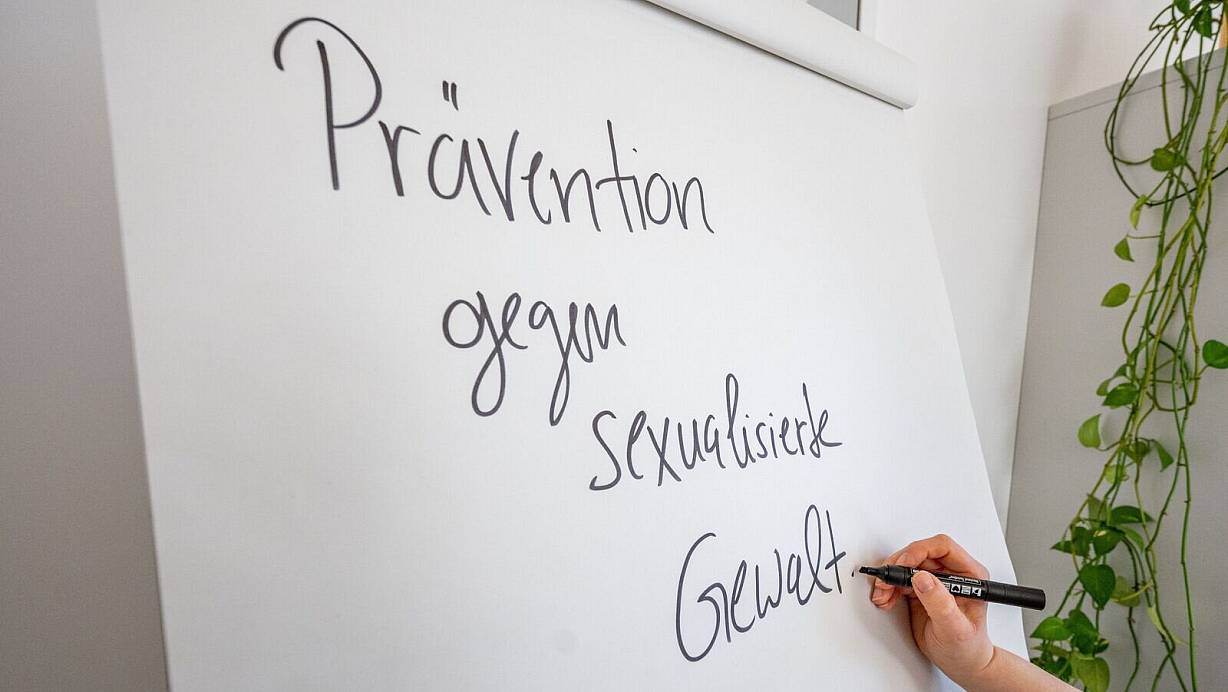 Prävention
gegen
sexualisierte
Gewalt.